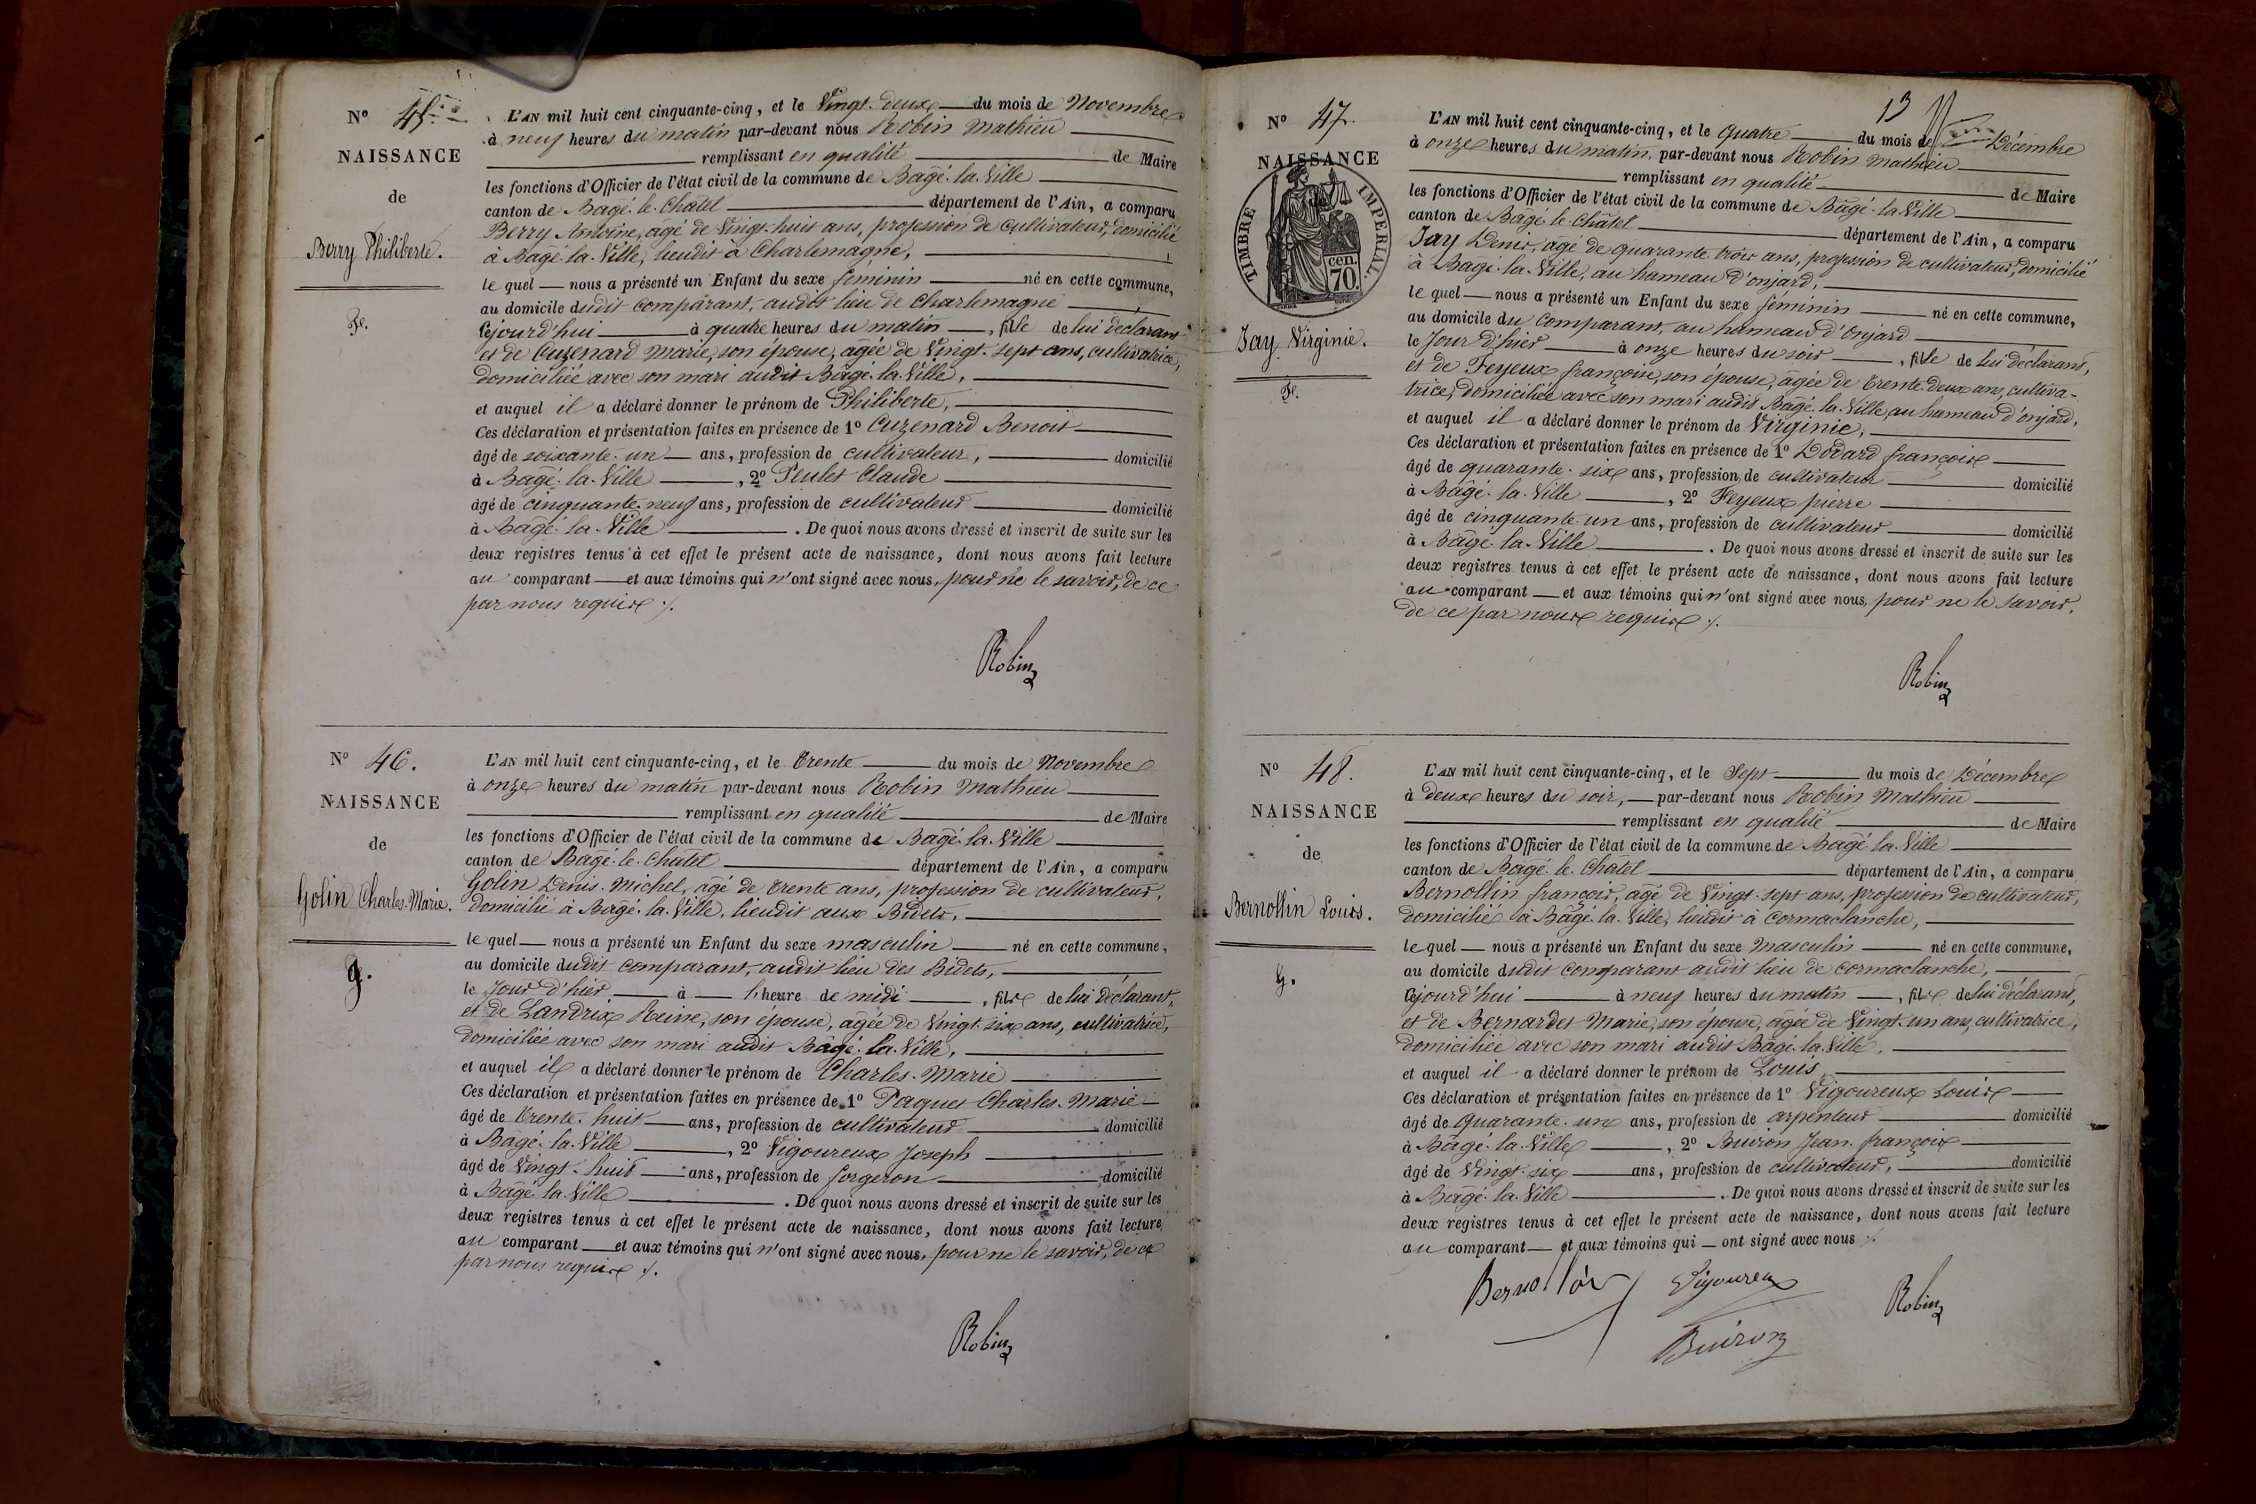 N° 45.
NAISSANCE
de
Berry Philiberte.
Fe.
L'AN mil huit cent cinquante-cinq, et le Vingt-deux du mois de Novembre
à neuf heures du matin par-devant nous Robin Mathieu
remplissant en qualité de Maire
les fonctions d'Officier de l'état civil de la commune de Bâgé-la-Ville
canton de Bâgé-le-Châtel département de l'Ain, a comparu
Berry Antoine, âgé de Vingt-huit ans, profession de cultivateur, domicilié
à Bâgé-la-Ville, lieudit à Charlemagne,
le quel nous a présenté un Enfant du sexe féminin né en cette commune,
au domicile dudit comparant, audit lieu de Charlemagne
cejourd'hui à quatre heures du matin, fille de lui déclarant
et de Cuzenard Marie, son épouse, âgée de Vingt-sept ans, cultivatrice,
domiciliée avec son mari audit Bâgé-la-Ville,
et auquel il a déclaré donner le prénom de Philiberte,
Ces déclaration et présentation faites en présence de 1° Cuzenard Benoit
âgé de soixante-un ans, profession de cultivateur, domicilié
à Bâgé-la-Ville, 2° Peulet Claude
âgé de cinquante-neuf ans, profession de cultivateur domicilié
à Bâgé-la-Ville. De quoi nous avons dressé et inscrit de suite sur les
deux registres tenus à cet effet le présent acte de naissance, dont nous avons fait lecture
au comparant et aux témoins qui n'ont signé avec nous, pour ne le savoir, de ce
par nous requis ./.
Robin
N° 46.
NAISSANCE
de
Golin Charles-Marie.
g.
L'AN mil huit cent cinquante-cinq, et le trente du mois de Novembre
à onze heures du matin par-devant nous Robin Mathieu
remplissant en qualité de Maire
les fonctions d'Officier de l'état civil de la commune de Bâgé-la-Ville
canton de Bâgé-le-Châtel département de l'Ain, a comparu
Golin Denis-Michel, âgé de trente ans, profession de cultivateur,
domicilié à Bâgé-la-Ville, lieudit aux Bidets,
le quel nous a présenté un Enfant du sexe masculin né en cette commune,
au domicile dudit comparant, audit lieu des Bidets,
le Jour d'hier à l'heure de midi, fils de lui déclarant,
et de Landrix Reine, son épouse, âgée de Vingt-six ans, cultivatrice,
domiciliée avec son mari audit Bâgé-la-Ville,
et auquel il a déclaré donner le prénom de Charles-Marie
Ces déclaration et présentation faites en présence de 1° Paquet Charles-Marie
âgé de trente-huit ans, profession de cultivateur domicilié
à Bâgé-la-Ville, 2° Vigoureux Joseph
âgé de Vingt-huit ans, profession de forgeron domicilié
à Bâgé-la-Ville. De quoi nous avons dressé et inscrit de suite sur les
deux registres tenus à cet effet le présent acte de naissance, dont nous avons fait lecture
au comparant et aux témoins qui n'ont signé avec nous, pour ne le savoir, de ce
par nous requis ./.
Robin
13
N° 47.
NAISSANCE
TIMBRE IMPERIAL
70 cen.
Jay Virginie.
Fe.
L'AN mil huit cent cinquante-cinq, et le quatre du mois de Décembre
à onze heures du matin, par-devant nous Robin Mathieu
remplissant en qualité de Maire
les fonctions d'Officier de l'état civil de la commune de Bâgé-la-Ville
canton de Bâgé-le-Châtel département de l'Ain, a comparu
Jay Denis, âgé de quarante-trois ans, profession de cultivateur, domicilié
à Bâgé-la-Ville, au hameau d'onjard,
le quel nous a présenté un Enfant du sexe féminin né en cette commune,
au domicile du comparant, au hameau d'Onjard
le Jour d'hier à onze heures du soir, fille de lui déclarant,
et de Feyeux françoise, son épouse, âgée de trente-deux ans, cultiva-
trice, domiciliée avec son mari audit Bâgé-la-Ville, au hameau d'onjard,
et auquel il a déclaré donner le prénom de Virginie,
Ces déclaration et présentation faites en présence de 1° Dodard françois
âgé de quarante-six ans, profession de cultivateur domicilié
à Bâgé-la-Ville, 2° Feyeux pierre
âgé de cinquante-un ans, profession de cultivateur domicilié
à Bâgé-la-Ville. De quoi nous avons dressé et inscrit de suite sur les
deux registres tenus à cet effet le présent acte de naissance, dont nous avons fait lecture
au comparant et aux témoins qui n'ont signé avec nous, pour ne le savoir,
de ce par nous requis ./.
Robin
N° 48.
NAISSANCE
de
Bernollin Louis.
g.
L'AN mil huit cent cinquante-cinq, et le Sept du mois de Décembre
à deux heures du soir, par-devant nous Robin Mathieu
remplissant en qualité de Maire
les fonctions d'Officier de l'état civil de la commune de Bâgé-la-Ville
canton de Bâgé-le-Châtel département de l'Ain, a comparu
Bernollin françois, âgé de Vingt-sept ans, profession de cultivateur,
domicilié à Bâgé-la-Ville, lieudit à Cormaclanche,
le quel nous a présenté un Enfant du sexe Masculin né en cette commune,
au domicile dudit comparant audit lieu de Cormaclanche,
cejourd'hui à neuf heures du matin, fils de lui déclarant,
et de Bernardet Marie, son épouse, âgée de Vingt-un ans, cultivatrice,
domiciliée avec son mari audit Bâgé-la-Ville,
et auquel il a déclaré donner le prénom de Louis,
Ces déclaration et présentation faites en présence de 1° Vigoureux Louis
âgé de Quarante-un ans, profession de arpenteur domicilié
à Bâgé-la-Ville, 2° Buiron Jean-françois
âgé de Vingt-six ans, profession de cultivateur, domicilié
à Bâgé-la-Ville. De quoi nous avons dressé et inscrit de suite sur les
deux registres tenus à cet effet le présent acte de naissance, dont nous avons fait lecture
au comparant et aux témoins qui ont signé avec nous ./.
Bernollin Vigoureux Robin
Buiron